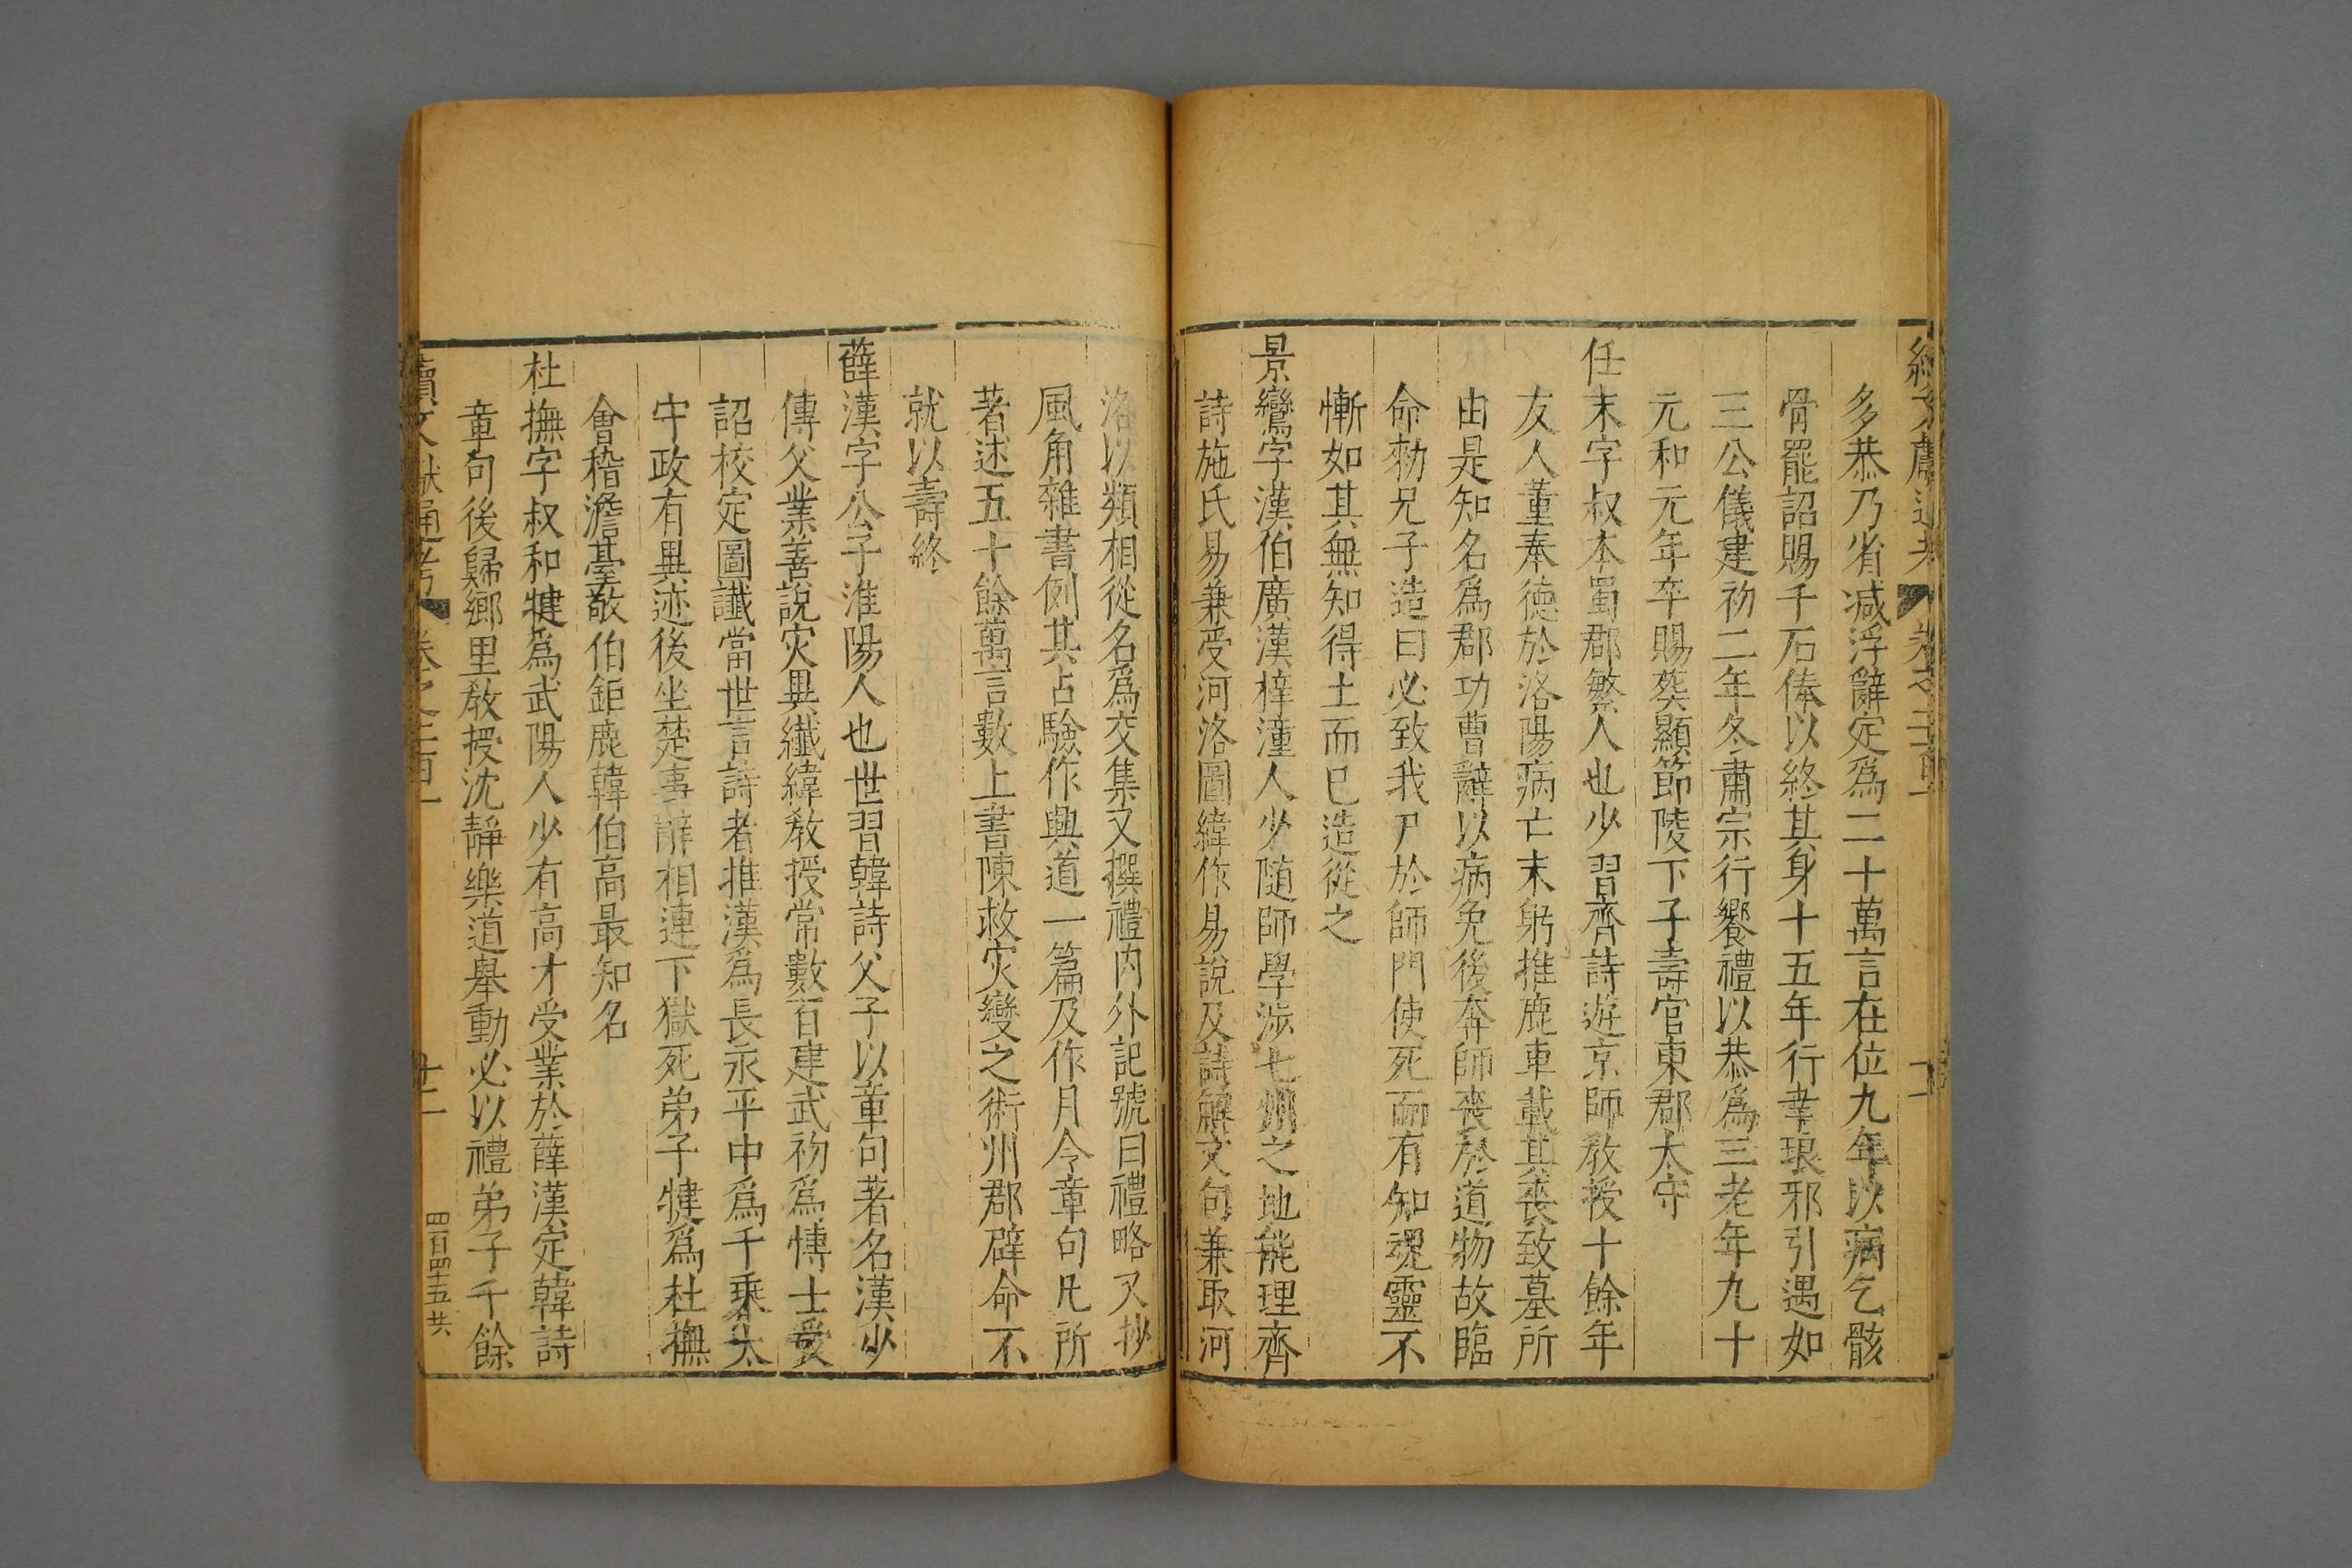 多恭乃省減浮辭定爲二十萬言在位九年以病乞骸
骨罷詔賜千石俸以終其身十五年行幸琅邪引遇如
三公儀建初二年冬肅宗行饗禮以恭爲三老年九十
元和元年卒賜葬顯節陵下子壽官東郡太守
任末字叔本蜀郡繁人也少習齊詩遊京師敎授十餘年
友人董奉德於洛陽病亡末躬推鹿車載其喪致墓所
由是知名爲郡功曹辭以病免後奔師喪於道物故臨
命勑兄子造曰必致我尸於師門使死而有知魂靈不
慚如其無知得土而已造從之
景鸞字漢伯廣漢梓潼人少隨師學涉七州之地能理齊
詩施氏易兼受河洛圖緯作易說及詩解文句兼取河
洛以類相從名爲交集又撰禮内外記號曰禮略又抄
風角雜書例其占驗作興道一篇及作月令章句凡所
著述五十餘萬言數上書陳救灾變之術州郡辟命不
就以壽終
薛漢字公子淮陽人也世習韓詩父子以章句著名漢少
傳父業善說灾異纖緯敎授常數百建武初爲博士受
詔校定圖讖當世言詩者推漢爲長永平中爲千乗太
守政有異迹後坐楚事辭相連下獄死弟子犍爲杜撫
會稽澹臺敬伯鉅鹿韓伯高最知名
杜撫字叔和犍爲武陽人少有高才受業於薛漢定韓詩
章句後歸鄉里敎授沈靜樂道舉動必以禮弟子千餘
續文獻通考 卷之二百一 十二
四百四十五 共